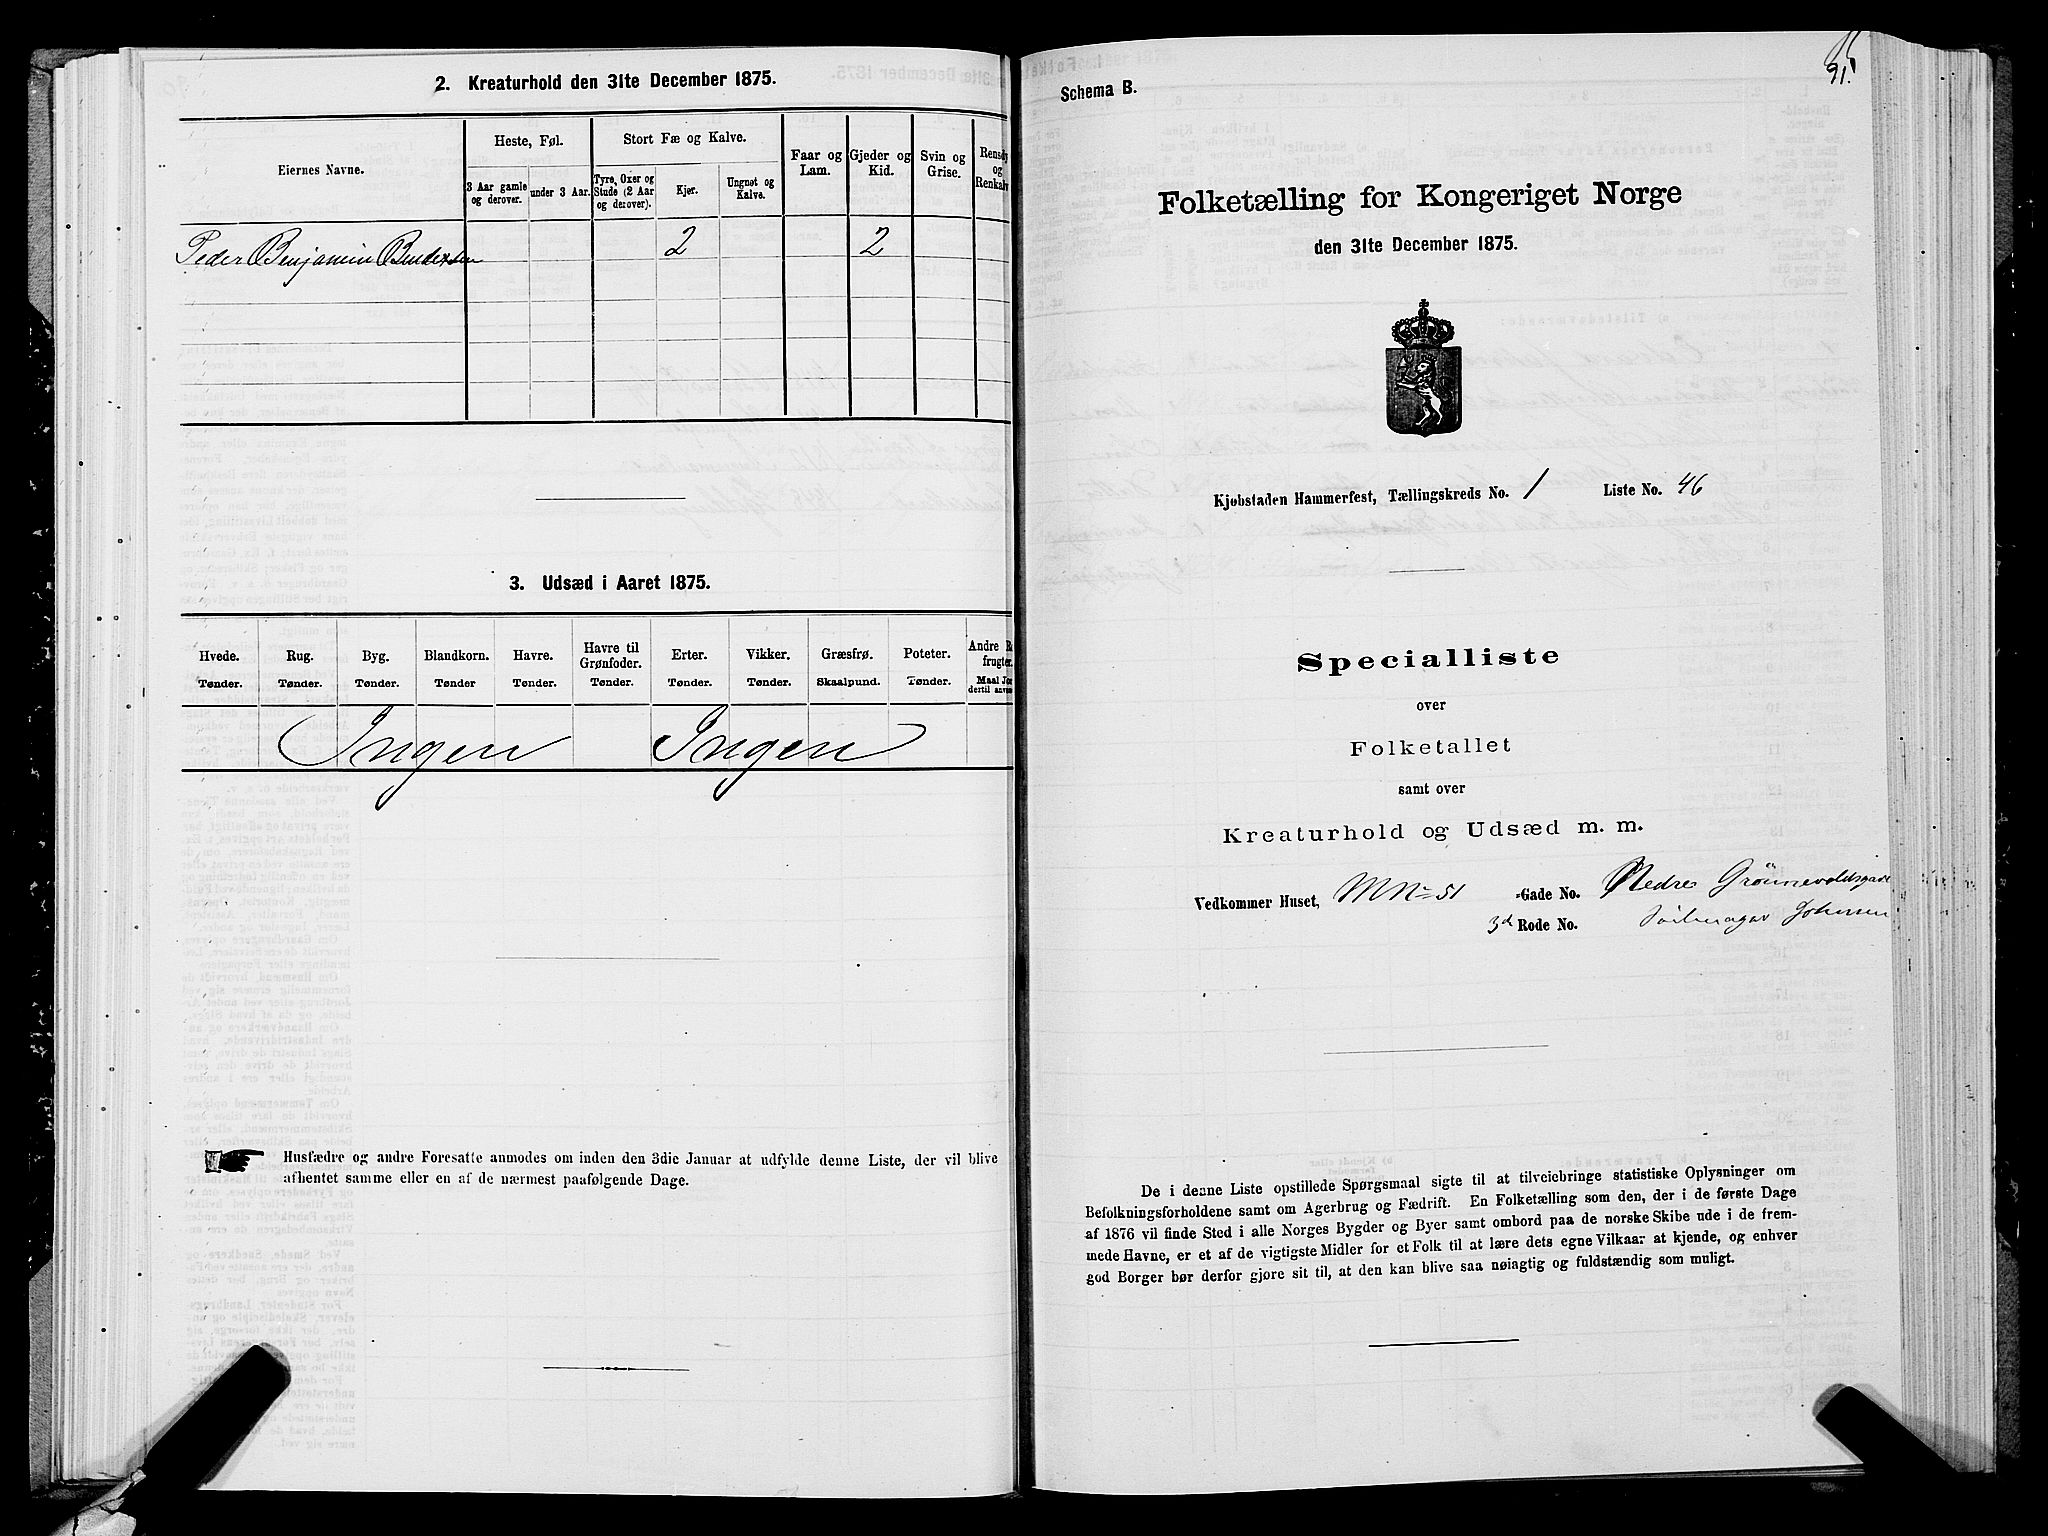 2. Kreaturhold den 31te December 1875.
Eiernes Navne.
Heste, Føl.
3 Aar gamle og derover.
under 3 Aar.
Stort Fæ og Kalve.
Tyre, Oxer og Stude (2 Aar og derover).
Kjør.
Ungnøt og Kalve.
Faar og Lam.
Gjeder og Kid.
Svin og Grise.
Rensdy og Renkalv
Peder Benjamin Bendexsen 2 2
3. Udsæd i Aaret 1875.
Hvede. Rug. Byg. Blandkorn. Havre. Havre til Grønfoder. Erter. Vikker. Græsfrø. Poteter. Andre R frugter.
Tønder. Tønder. Tønder. Tønder Tønder. Tønder. Tønder. Tønder. Skaalpund. Tønder. Maal Jor dertil anve
Ingen Ingen
Husfædre og andre Foresatte anmodes om inden den 3die Januar at udfylde denne Liste, der vil blive
afhentet samme eller en af de nærmest paafølgende Dage.
91.
Schema B.
Folketælling for Kongeriget Norge
den 31te December 1875.
Kjøbstaden Hammerfest, Tællingskreds No. 1 Liste No. 46
Specialliste
over
Folketallet
samt over
Kreaturhold og Udsæd m. m.
Vedkommer Huset, MNo 51 -Gade No. Nedre Grönnevoldsgade
3d Rode No. Johnsen
De i denne Liste opstillede Spørgsmaal sigte til at tilveiebringe statistiske Oplysninger om
Befolkningsforholdene samt om Agerbrug og Fædrift. En Folketælling som den, der i de første Dage
af 1876 vil finde Sted i alle Norges Bygder og Byer samt ombord paa de norske Skibe ude i de frem-
mede Havne, er et af de vigtigste Midler for et Folk til at lære dets egne Vilkaar at kjende, og enhver
god Borger bør derfor gjøre sit til, at den kan blive saa nøiagtig og fuldstændig som muligt.